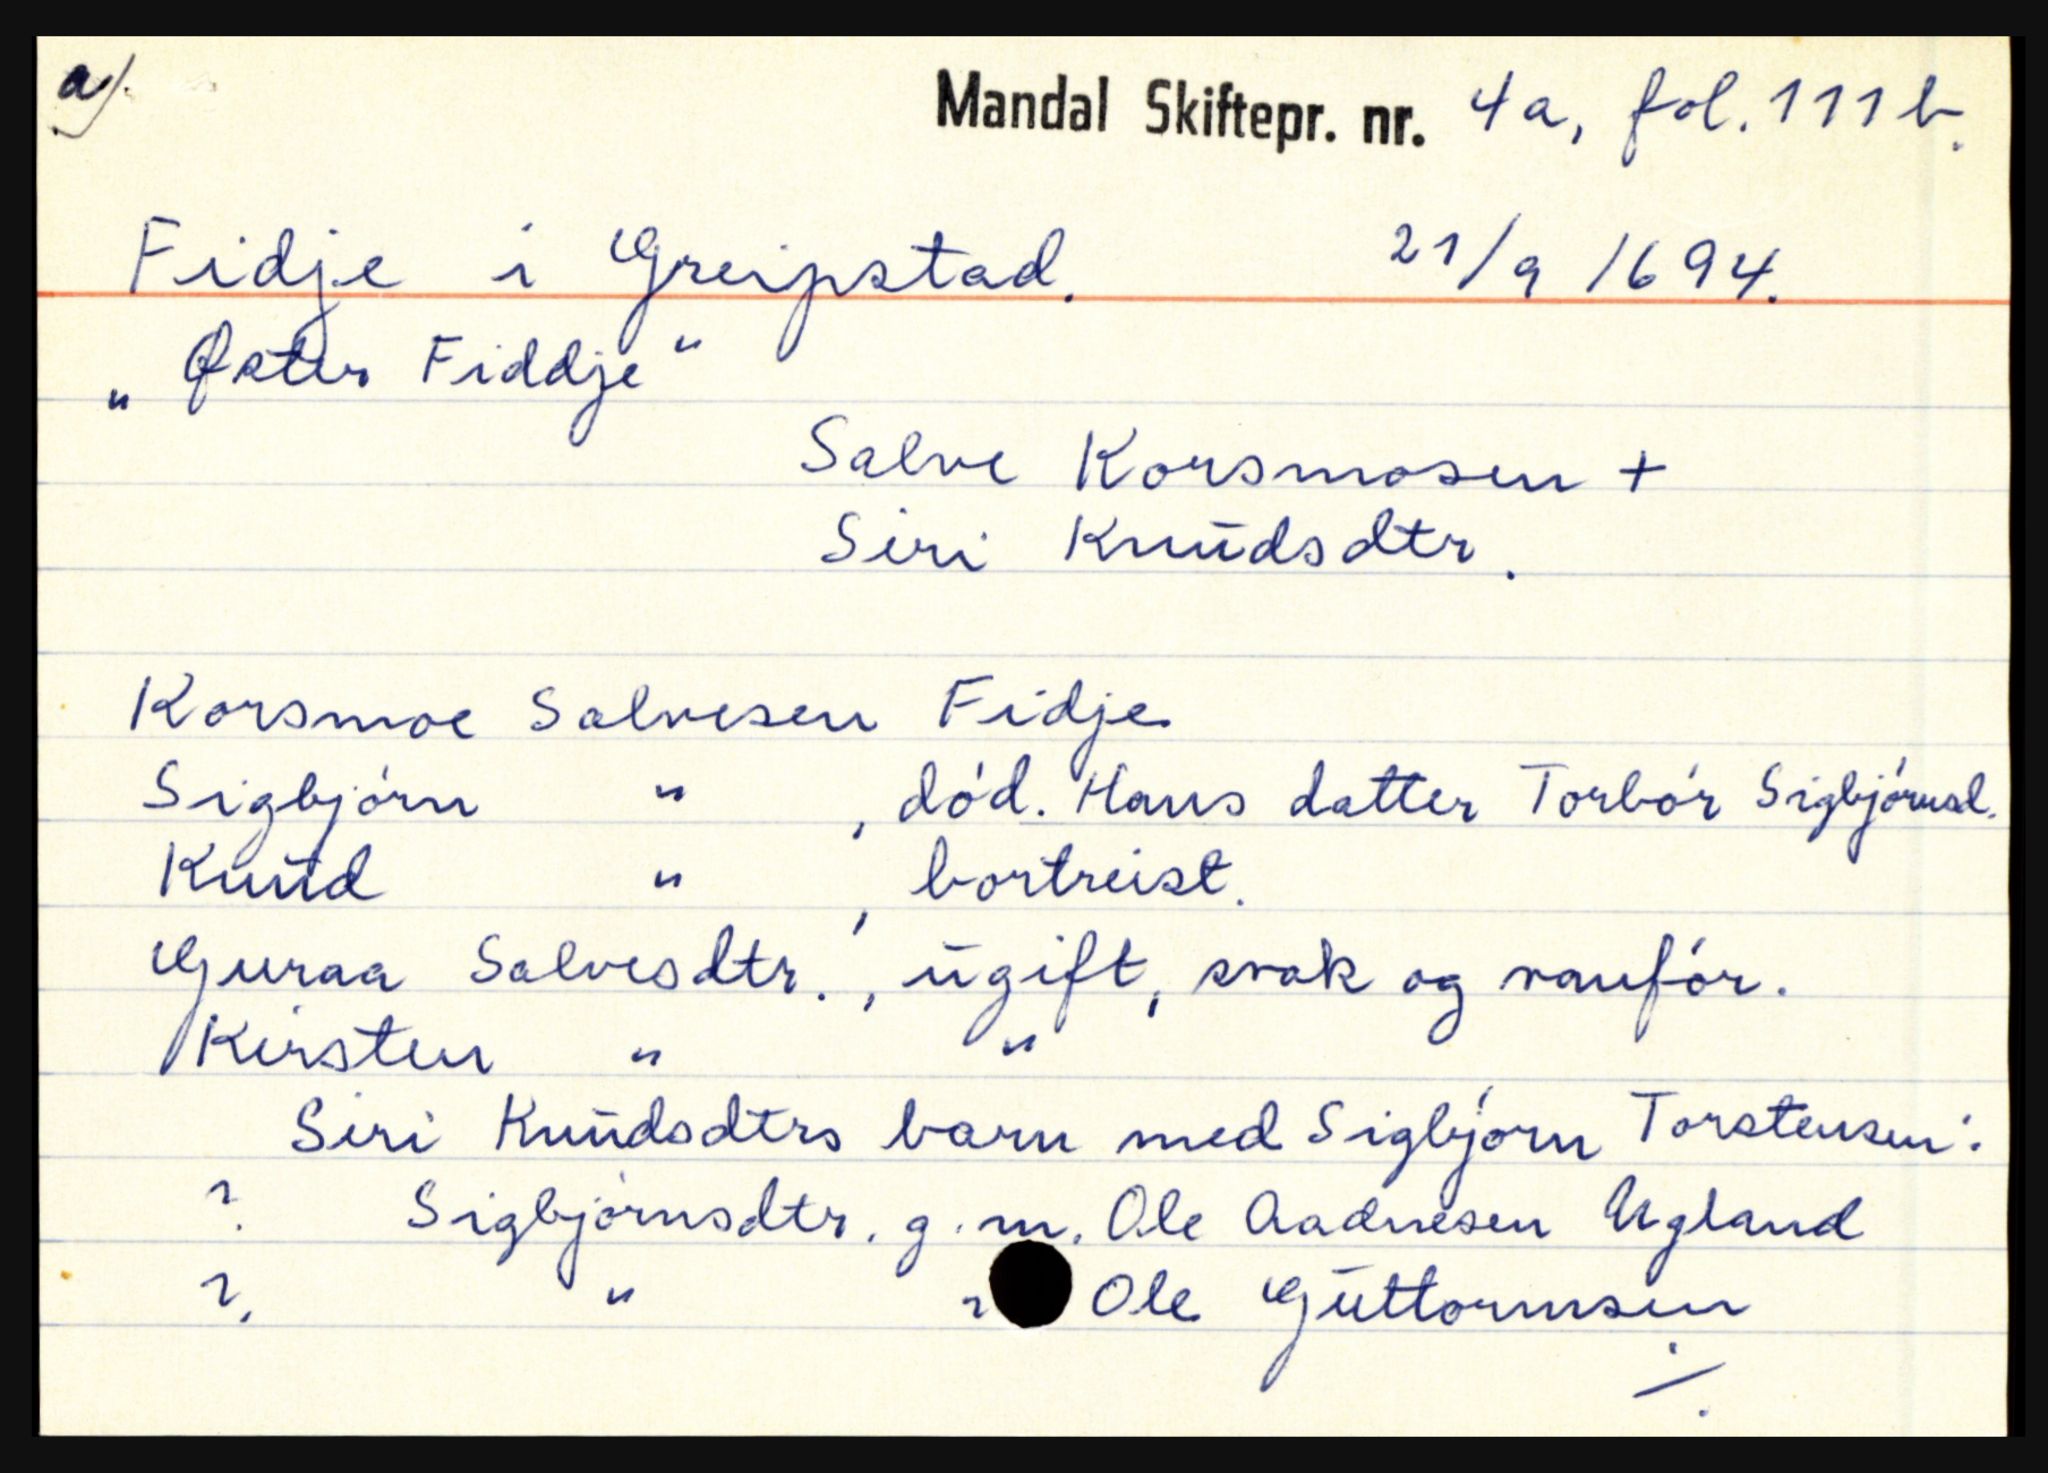 a/.
Mandal Skiftepr. nr. 4a, fol. 111b.
Fidje i Greipstad. 21/9 1694.
„Øster Fiddje"
Salve Korsmosen +
Siri Knudsdtr.
Korsmoe Salvesen Fidje
Sigbjórn " , dód. Hans datter Torbór Sigbjórnsd.
Knud " , bortreist.
Guraa Salvesdtr., ugift, svak og vanfór.
Kirsten " "
Siri Knudsdtrs barn med Sigbjórn Torstensen:
? Sigbjórnsdtr. g.m. Ole Aadnesen Ugland
? " " Ole Guttormsen
./.